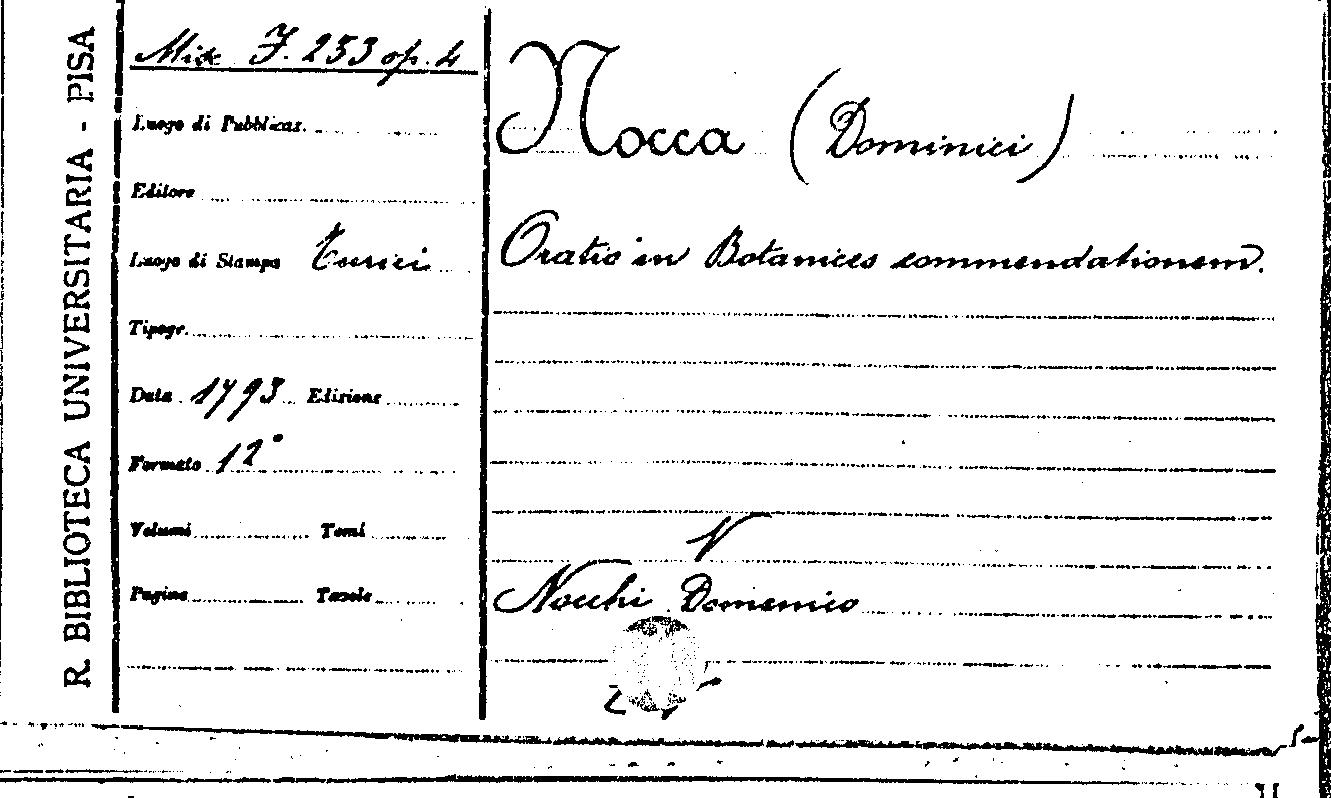 R. BIBLIOTECA UNIVERSITARIA - PISA
Misc J. 253 op. 4
Luogo di Pubblicaz.
Editore
Luogo di Stampa Turici
Tipogr.
Data 1793 Edizione
Formato 12°
Volumi Tomi
Pagine Tavole
Nocca (Dominici)
Oratio in Botanices commendationem.
N
Nocchi Domenico